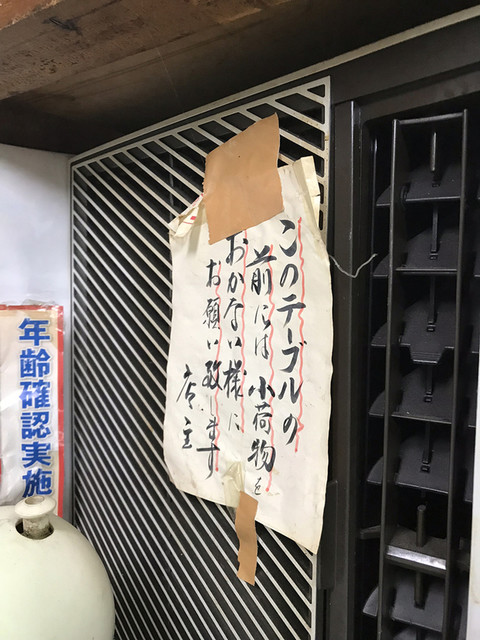 このテーブルの
前には小荷物を
おかない様に
お願い致します
店主
年齢確認実施